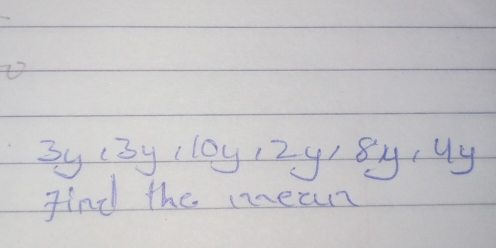 3y, 3y, 10y, 2y, 8y, 4y
Find the mean